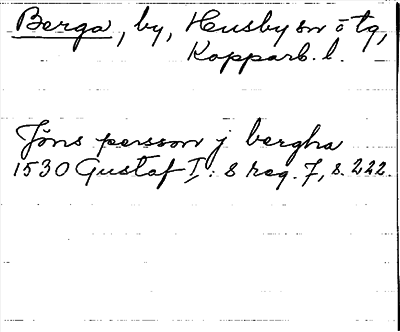 Berga, by, Husby sn ö tg,
Kopparb. l.
Jöns persson j bergha
1530 Gustaf I: s reg. 7, s. 222.